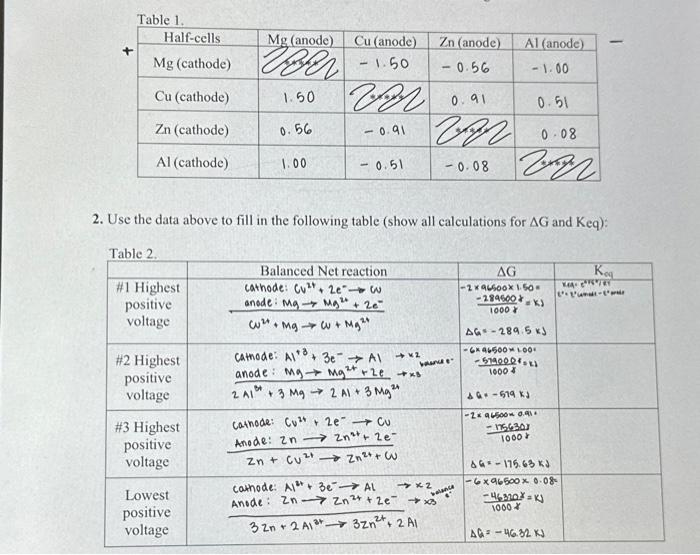 Table 1.
Half-cells Mg (anode) Cu (anode) Zn (anode) Al (anode) −
+
Mg (cathode) **** - 1.50 - 0.56 - 1.00
Cu (cathode) 1.50 **** 0.91 0.51
Zn (cathode) 0.56 - 0.91 **** 0.08
Al (cathode) 1.00 - 0.51 - 0.08 ****
2. Use the data above to fill in the following table (show all calculations for ΔG and Keq):
Table 2.
Balanced Net reaction ΔG Keq
#1 Highest
positive
voltage
cathode: Cu²⁺ + 2e⁻ → Cu
anode: Mg → Mg²⁺ + 2e⁻
Cu²⁺ + Mg → Cu + Mg²⁺
-2 × 96500 × 1.50 =
-289500 J = KJ
1000 J
ΔG = - 289.5 KJ
#2 Highest
positive
voltage
Cathode: Al⁺³ + 3e⁻ → Al → ×2
anode: Mg → Mg²⁺ + 2e → ×3
balance e⁻
2 Al³⁺ + 3 Mg → 2 Al + 3 Mg²⁺
-6 × 96500 × 1.00 =
-579000 J = KJ
1000 J
ΔG = - 579 KJ
#3 Highest
positive
voltage
Cathode: Cu²⁺ + 2e⁻ → Cu
Anode: Zn → Zn²⁺ + 2e⁻
Zn + Cu²⁺ → Zn²⁺ + Cu
-2 × 96500 × 0.91 =
-175630 J
1000 J
ΔG = - 175.63 KJ
Lowest
positive
voltage
Cathode: Al³⁺ + 3e⁻ → Al → ×2
Anode: Zn → Zn²⁺ + 2e⁻ → ×3
balance e⁻
3 Zn + 2 Al³⁺ → 3Zn²⁺ + 2 Al
-6 × 96500 × 0.08 =
-46320 J = KJ
1000 J
ΔG = - 46.32 KJ